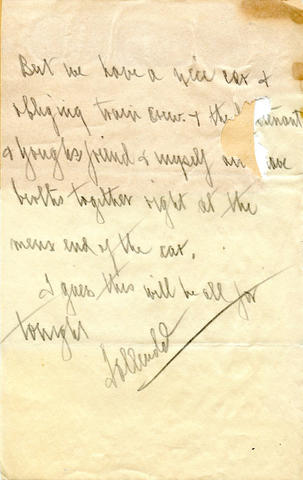 But we have a nice car &
obliging train crew. & the
& Young's friend & myself
berths together right at the
mens end of the car.
I guess this will be all for
tonight